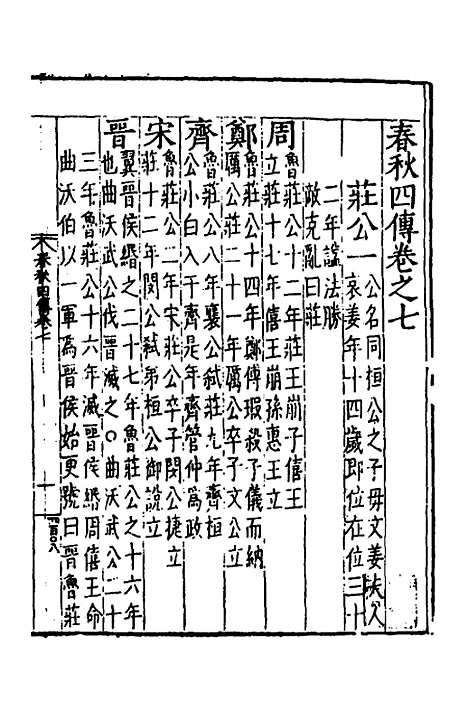 春秋四傳卷之七
莊公一
公名同桓公之子母文姜夫人
哀姜年十四歲即位在位三十
二年謚法勝
敵克亂曰莊
周
魯莊公十二年莊王崩子僖王
立莊十七年僖王崩孫惠王立
鄭
魯莊公十四年鄭傅瑕殺子儀而納
厲公莊二十一年厲公卒子文公立
齊
魯莊公八年襄公弒莊九年齊桓
公小白入于齊是年齊管仲爲政
宋
魯莊公二年宋莊公卒子閔公捷立
莊十二年閔公弒弟桓公御說立
晉
翼晉侯緡之二十七年魯莊公之十六年
也曲沃武公伐晉滅之○曲沃武公二十
三年魯莊公十六年滅晉侯緡周僖王命
曲沃伯以一軍爲晉侯始更號曰晉魯莊
春秋四傳卷七
一